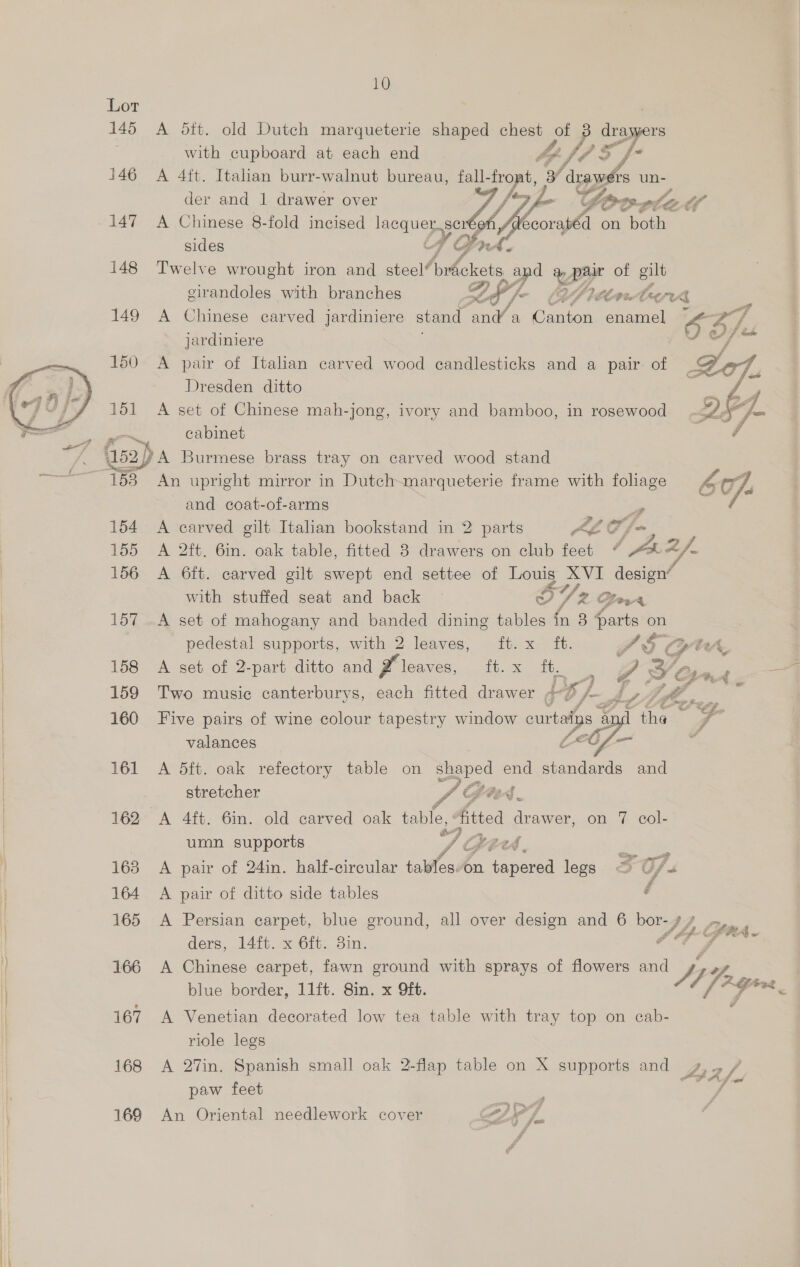 10
Lot
145 A 5ft. old Dutch marqueterie shaped chest of 3 drawers
with cupboard at each end
146 A 4ft. Italian burr-walnut bureau, fall-front, 3 drawers un-
der and 1 drawer over
147 A Chinese 8-fold incised lacquer screen, decorated on both
sides
148 Twelve wrought iron and steel brackets and a pair of gilt
girandoles with branches
149 A Chinese carved jardiniere stand and a Canton enamel
jardiniere
150 A pair of Italian carved wood candlesticks and a pair of
Dresden ditto
151 A set of Chinese mah-jong, ivory and bamboo, in rosewood
cabinet
152 A Burmese brass tray on carved wood stand
153 An upright mirror in Dutch marqueterie frame with foliage 60/-
and coat-of-arms
154 A carved gilt Italian bookstand in 2 parts
155 A 2ft. 6in. oak table, fitted 3 drawers on club feet 42/-
156 A 6ft. carved gilt swept end settee of Louis XVI design
with stuffed seat and back
157 A set of mahogany and banded dining tables in 3 parts on
pedestal supports, with 2 leaves, ft. x ft.
158 A set of 2-part ditto and leaves, ft. x ft.
159 Two music canterburys, each fitted drawer
160 Five pairs of wine colour tapestry window curtains and the
valances
161 A 5ft. oak refectory table on shaped end standards and
stretcher
162 A 4ft. 6in. old carved oak table, fitted drawer, on 7 col-
umn supports
163 A pair of 24in. half-circular tables on tapered legs
164 A pair of ditto side tables
165 A Persian carpet, blue ground, all over design and 6 bor-
ders, 14ft. x 6ft. 3in.
166 A Chinese carpet, fawn ground with sprays of flowers and
blue border, 11ft. 8in. x 9ft.
167 A Venetian decorated low tea table with tray top on cab-
riole legs
168 A 27in. Spanish small oak 2-flap table on X supports and
paw feet
169 An Oriental needlework cover